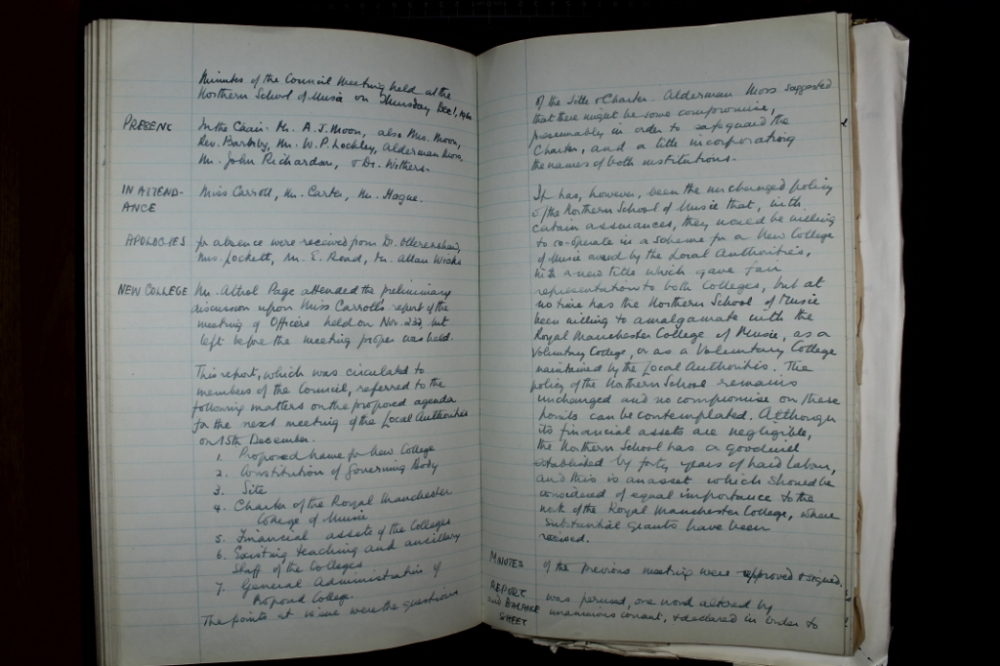 Minutes of the Council Meeting held at the
Northern School of Music on Thursday Dec 1, 1960
PRESENT In the Chair - Mr. A. J. Moon, also Mrs. Moon,
Rev. Barnby, Mr. W. P. Lockley, Alderman Moss,
Mr. John Richardson, & Dr. Withers.
IN ATTEND- Miss Carroll, Mr. Carter, Mr. Hague.
ANCE
APOLOGIES for absence were received from Dr. Ollerenshaw,
Mrs. Lockett, Mr. E. Read, Mr. Allan Wicks
NEW COLLEGE Mr. Athol Page attended the preliminary
discussion upon Miss Carroll's report of the
meeting of Officers held on Nov. 23rd, but
left before the meeting proper was held.
This report, which was circulated to
members of the Council, referred to the
following matters on the proposed agenda
for the next meeting of the Local Authorities
on 15th December.
1. Proposed name for New College
2. Constitution of Governing Body
3. Site
4. Charter of the Royal Manchester
College of Music
5. Financial assets of the Colleges
6. Existing teaching and ancillary
Staff of the Colleges
7. General Administration of
Proposed College.
The points at issue were the questions
of the title & Charter. Alderman Moss suggested
that there might be some compromise,
presumably in order to safeguard the
Charter, and a title incorporating
the names of both institutions.
It has, however, been the unchanged policy
of the Northern School of Music that, with
certain assurances, they would be willing
to co-operate in a scheme for a New College
of Music owned by the Local Authorities,
with a new title which gave fair
representation to both Colleges, but at
no time has the Northern School of Music
been willing to amalgamate with the
Royal Manchester College of Music, as a
Voluntary College, or as a Voluntary College
maintained by the Local Authorities. The
policy of the Northern School remains
unchanged and no compromise on these
points can be contemplated. Although
its financial assets are negligible,
the Northern School has a goodwill
established by forty years of hard labour,
and this is an asset which should be
considered of equal importance to the
work of the Royal Manchester College, where
substantial grants have been
received.
MINUTES of the previous meeting were approved & signed.
REPORT was perused, one word altered by
AND BALANCE unanimous consent, & declared in order to
SHEET